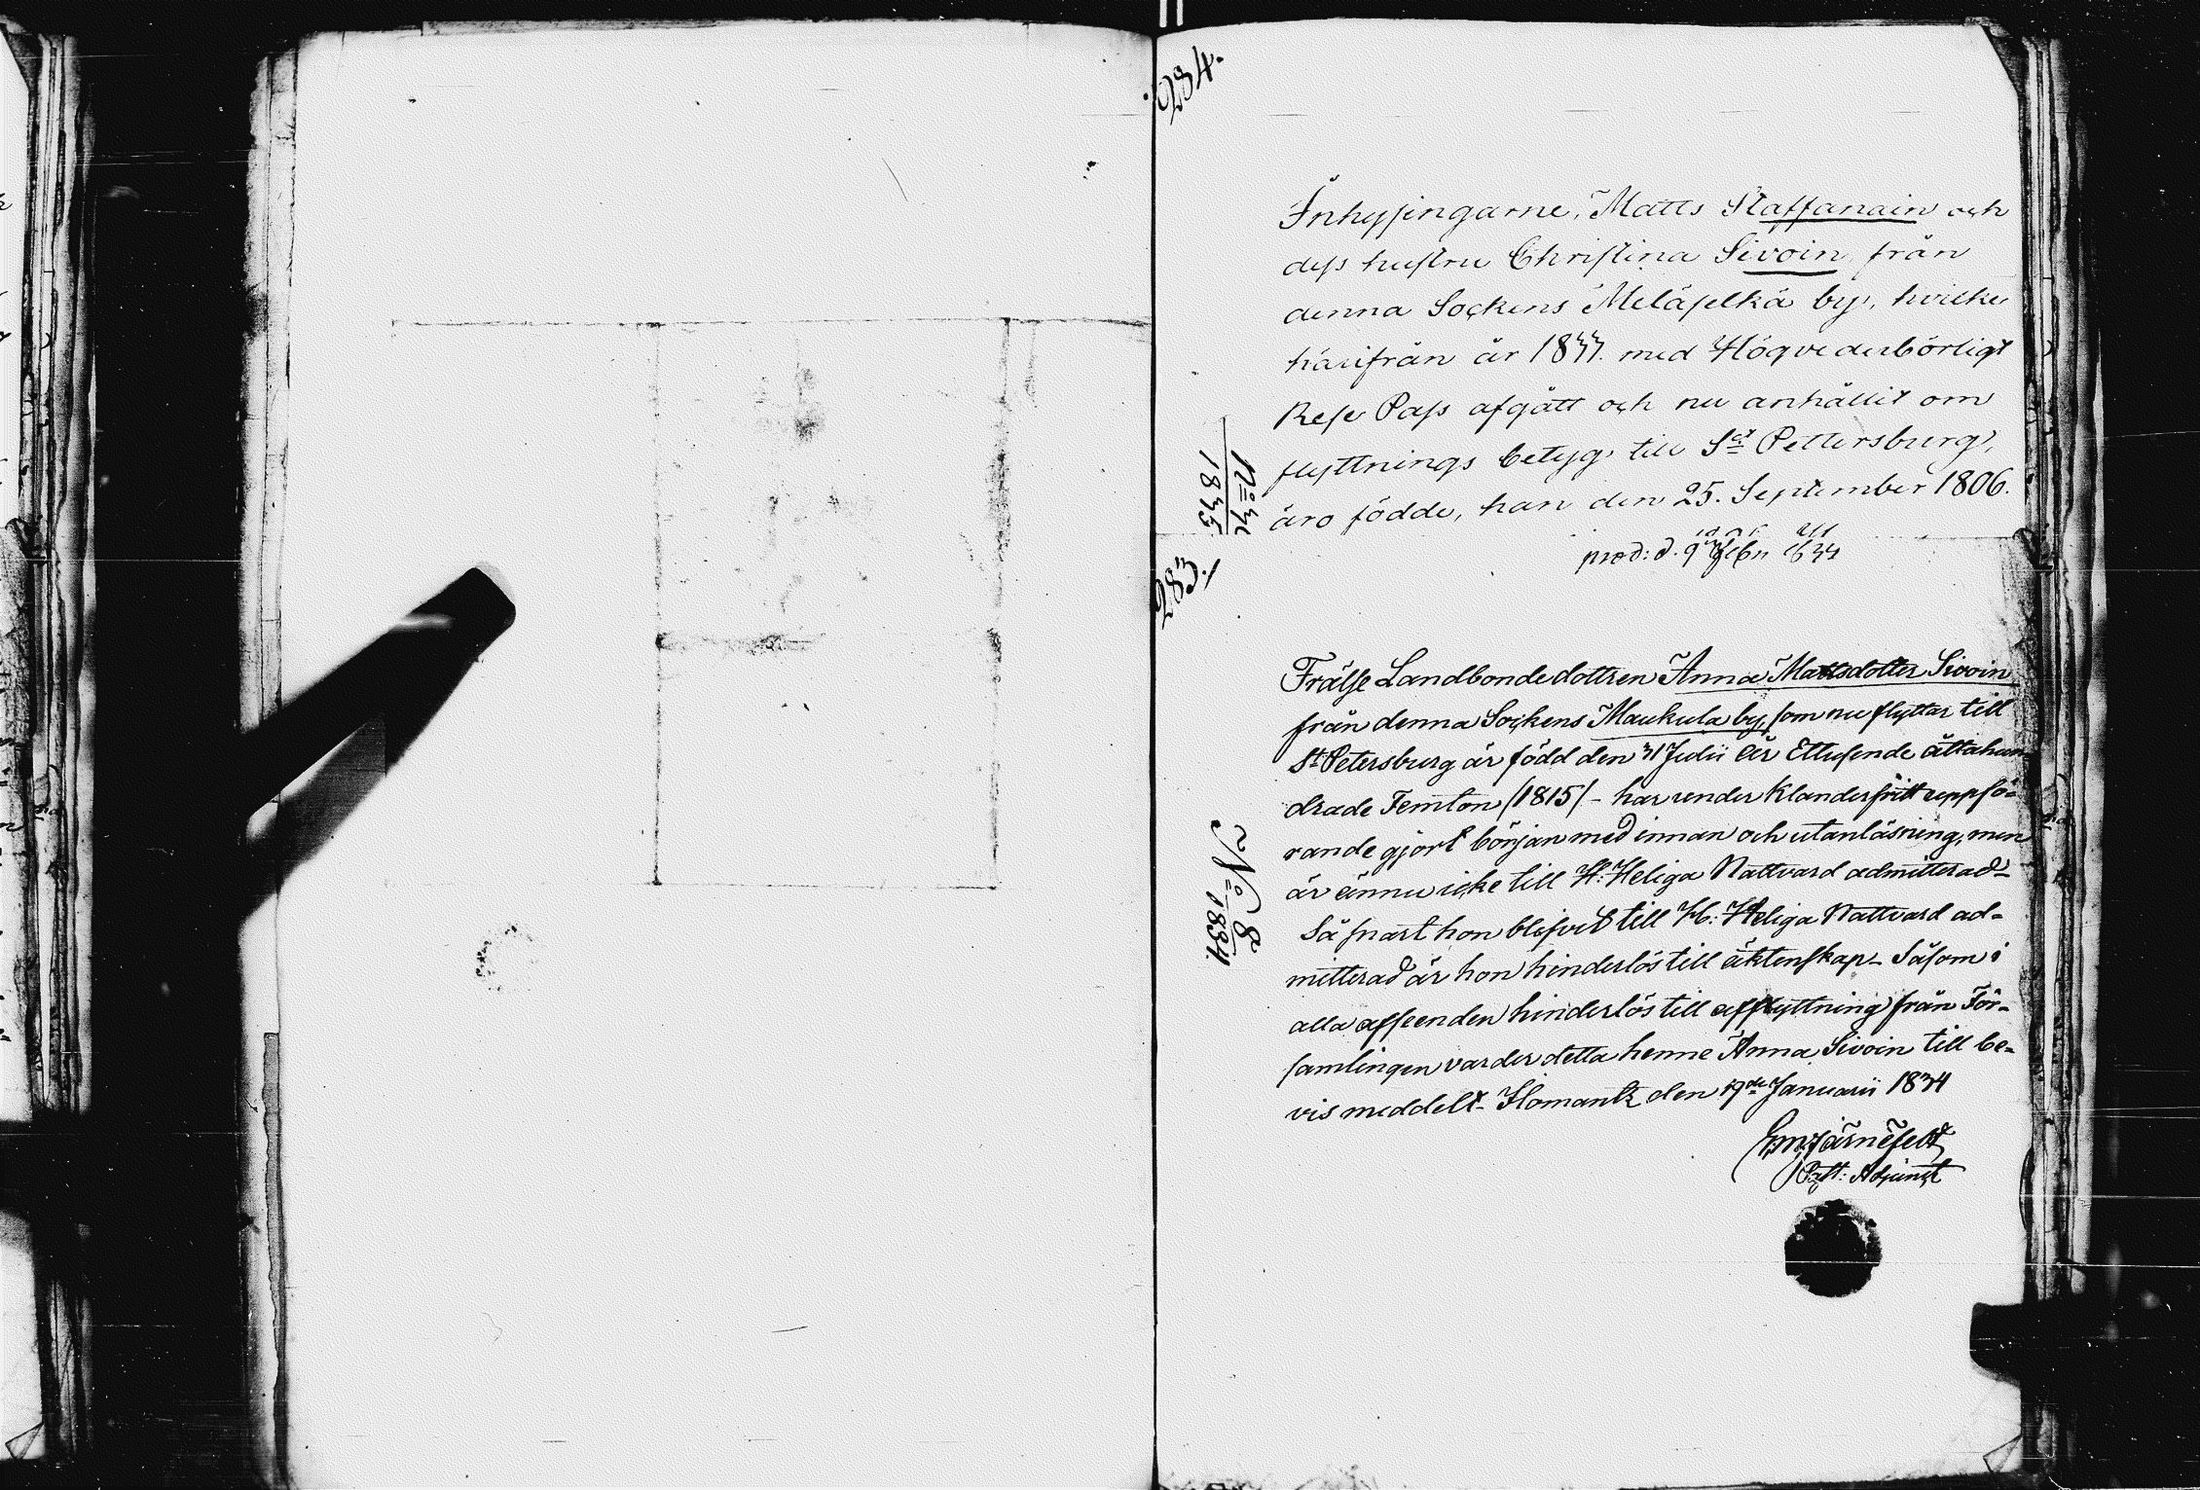 284.
Inhysingarne, Matts Staffanain och
dess hustru Christina Sivoin från
denna Sockens Meläselkä by, hvilka
härifrån år 1833. med Högvederbörligt
Rese Pass afgått och nu anhållit om
flyttnings betyg till S:t Pettersburg,
äro födde, han den 25. September 1806.
1835
283.
prod: d. 9 Febr 1834
Frälse Landbondedottren Anna Mattsdotter Sivoin
från denna Sockens Maukula by, som nu flyttar till
St Petersburg är född den 31 Julii År Ettusende åttahun
drade Femton /1815/ - har under klanderfritt uppfö=
rande gjort början med innan och utanläsning, men
är ännu icke till H: Heliga Nattvard admitterad -
Så snart hon blifvit till H: Heliga Nattvard ad=
mitterad är hon hinderlös till äktenskap - Såsom i
alla afseenden hinderlös till afflyttning från För=
samlingen varder detta henne Anna Sivoin till be=
vis meddelt - Ilomantz den 19de Januarii 1834
Järnefelt
Past: Adjunct
No 8
1834